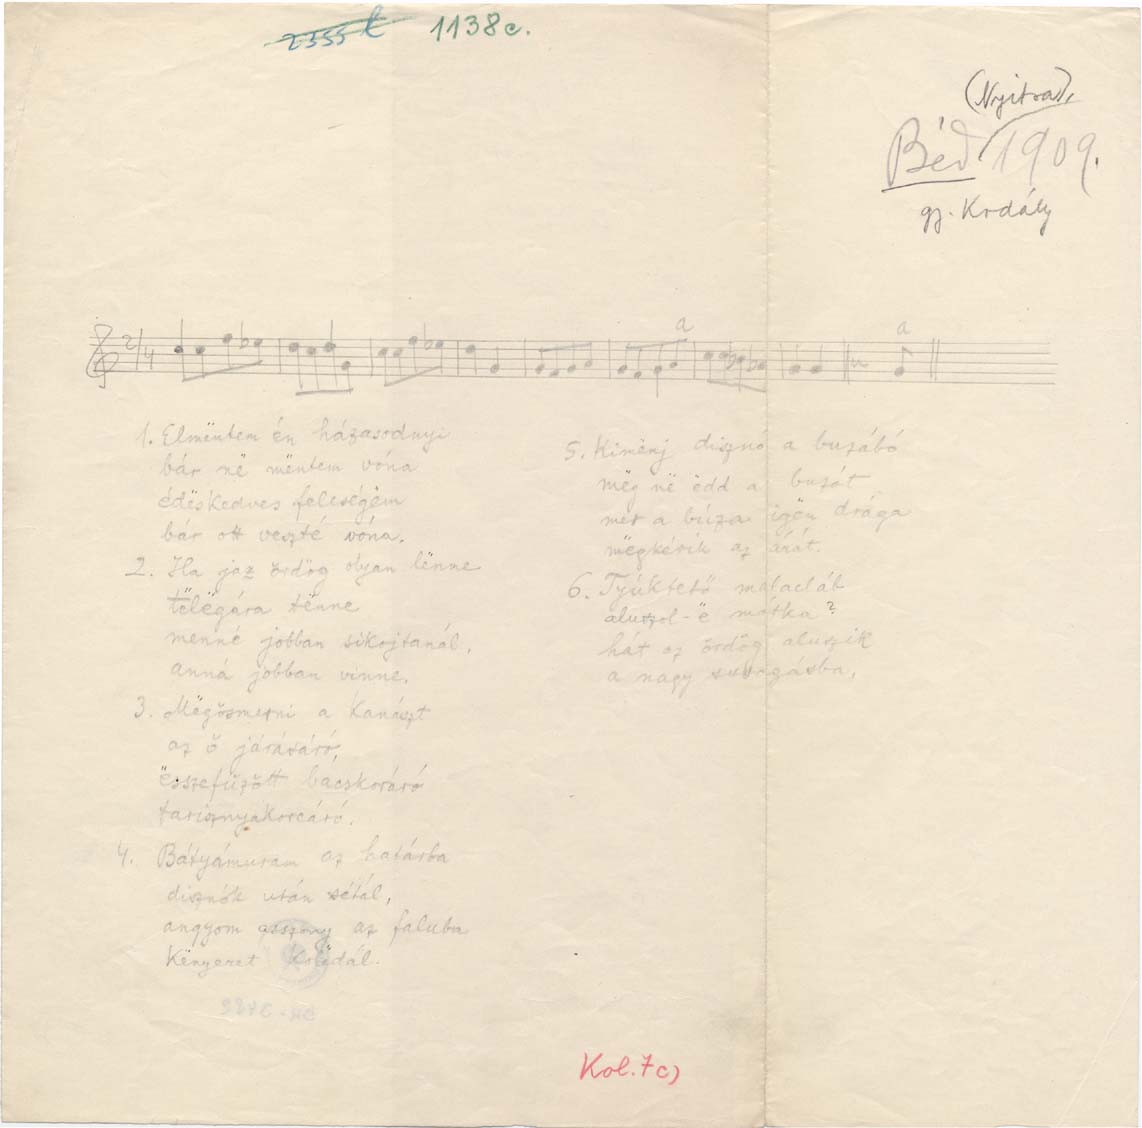 2355 t 1138c.
(Nyitra),
Béd 1909.
gy. Kodály
2/4
a a
1. Elmëntem én házasodnyi
bár në mëntem vóna
édëskedves feleségëm
bár ott veszté vóna.
2. Ha jaz ördög olyan lënne
tëlëgára tënne
menné jobban sikojtanál,
anná jobban vinne.
3. Mëgösmerni a kanászt
az ő járásáró,
ësszefűzött bacskoráró
tarisznyakorcáró.
4. Bátyámuram az határba
disznók után sétál,
angyom asszony az faluba
Kënyeret kolëdál.
5. Kimënj disznó a buzábó
mëg në ëdd a buzát
mer a búza igën drága
mëgkérik az árát.
6. Tyúktető malacláb
aluszol-ë mátka?
hát az ördög aluszik
a nagy
Kol. 7c)